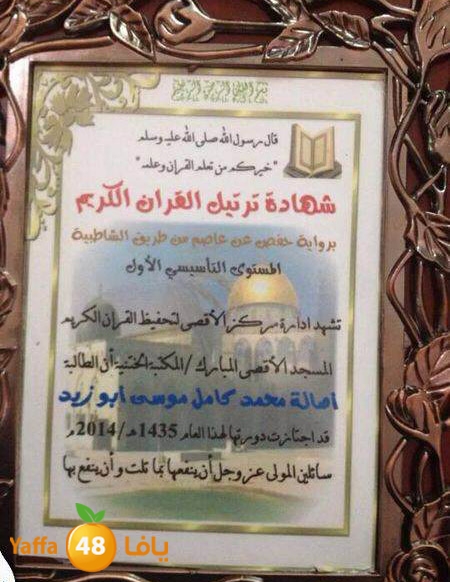 بسم الله الرحمن الرحيم
قال رسول الله صلى الله عليه وسلم
"خيركم من تعلم القران وعلمه"
شهادة ترتيل القران الكريم
برواية حفص عن عاصم من طريق الشاطبية
المستوى التأسيسي الأول
تشهد ادارة مركز الأقصى لتحفيظ القران الكريم
المسجد الأقصى المبارك / المكتبة الختنية أن الطالبة
أصالة محمد كامل موسى أبو زيد
قد اجتازت دورتها لهذا العام 1435هـ/2014م
سائلين المولى عز وجل أن ينفعها بما تلت وأن ينفع بها
Yaffa 48 يافا